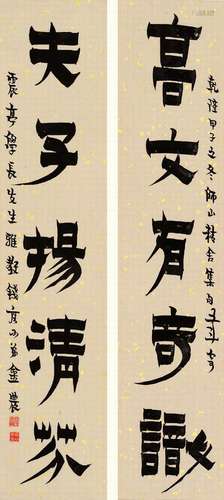 乾隆甲子之冬師山精舍集句
高文有奇識
夫子揚清芬
震亭學長先生雅教錢唐弟金農